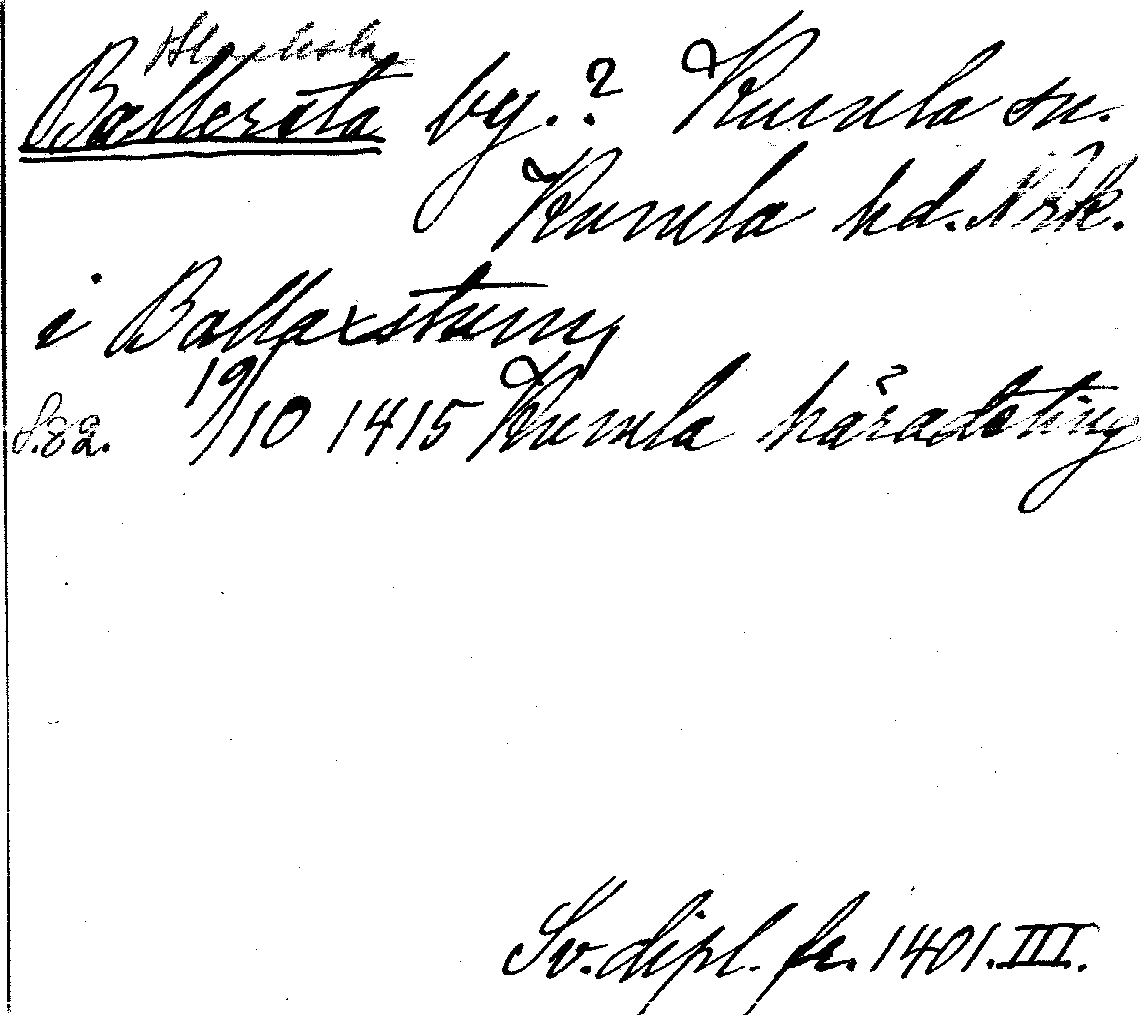 Ballersta by.? Kumla sn.
Kumla hd. Nrk.
i Ballaxstum
S.82. 19/10 1415 Kumla häradsting
Sv. dipl. fr. 1401. III.